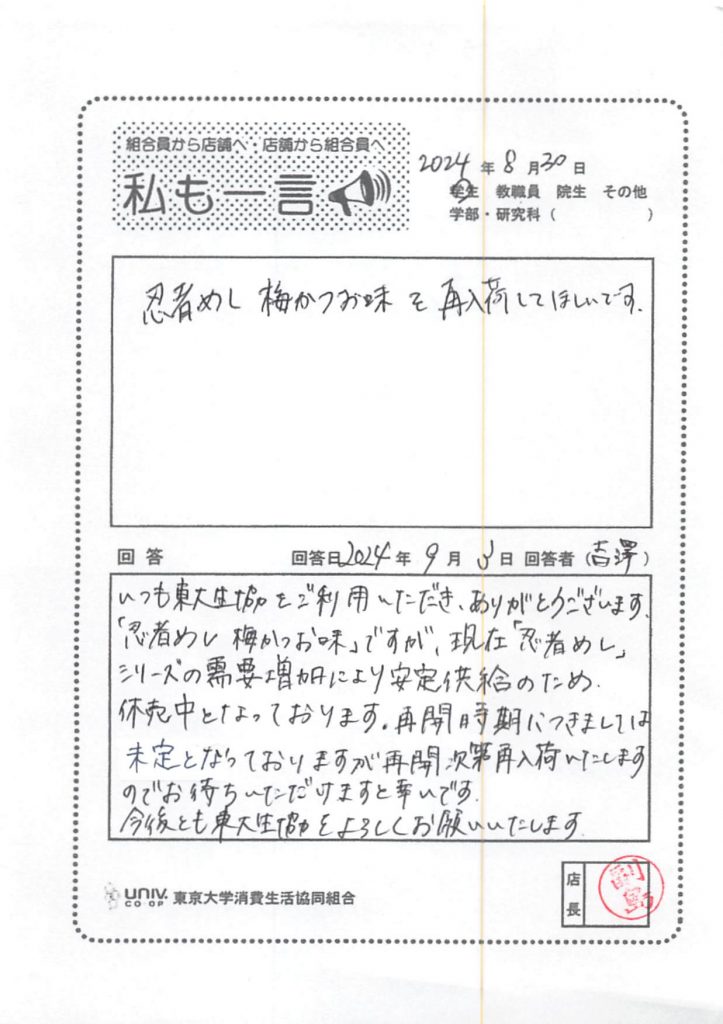 組合員から店舗へ・店舗から組合員へ
私も一言
2024年8月30日
学生 教職員 院生 その他
学部・研究科( )
忍者めし 梅かつお味 を 再入荷してほしいです.
回答 回答日2024年9月3日 回答者(吉澤)
いつも東大生協をご利用いただき、ありがとうございます.
「忍者めし 梅かつお味」ですが、現在「忍者めし」
シリーズの需要増加により安定供給のため.
休売中となっております.再開時期につきましては
未定となっておりますが再開次第再入荷いたします
のでお待ちいただけますと幸いです.
今後とも東大生協をよろしくお願いいたします.
UNIV. CO-OP 東京大学消費生活協同組合
店長